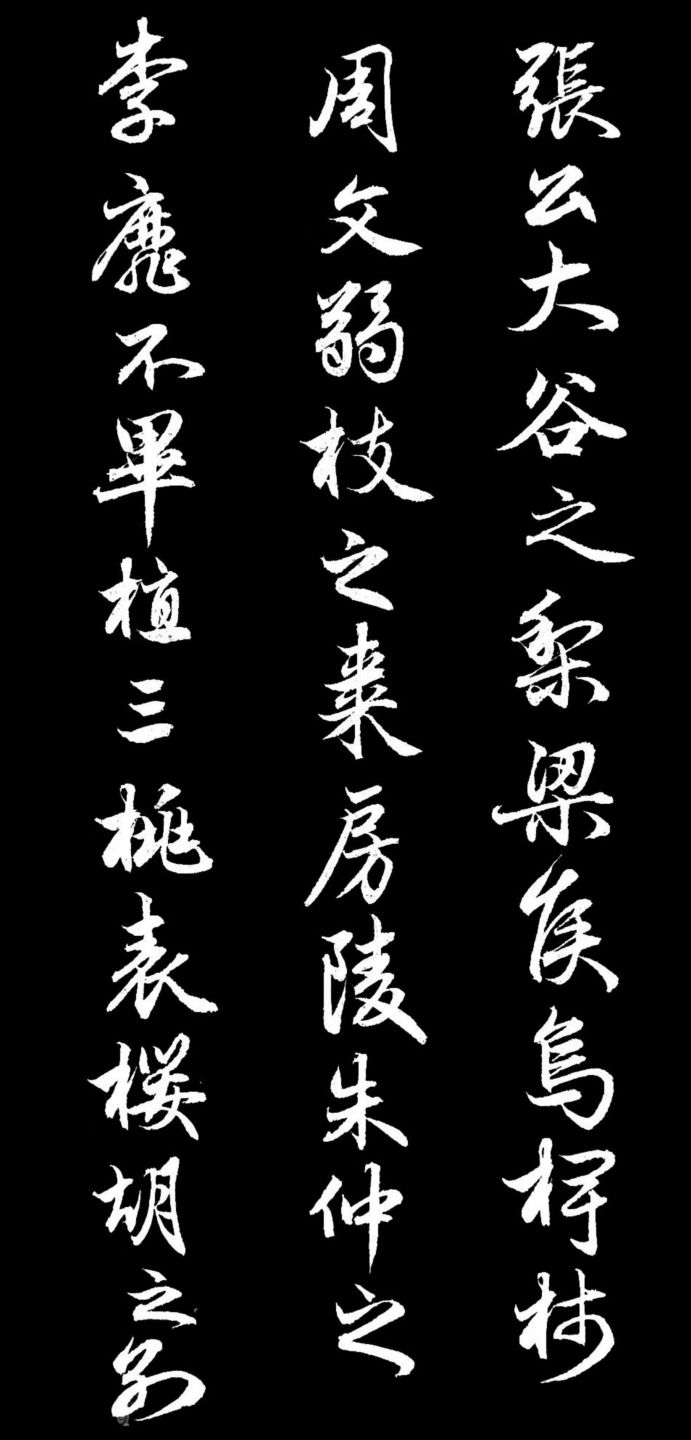 張公大谷之梨梁侯烏椑柿
周文弱枝之棗房陵朱仲之
李靡不畢植三桃表櫻胡之別